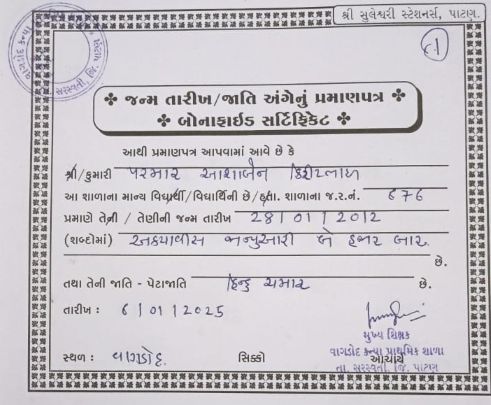 શ્રી સુલેશ્વરી સ્ટેશનર્સ, પાટણ.
❖ જન્મ તારીખ/જાતિ અંગેનું પ્રમાણપત્ર ❖
❖ બોનાફાઈડ સર્ટિફિકેટ ❖
આથી પ્રમાણપત્ર આપવામાં આવે છે કે
શ્રી/કુમારી પરમાર આશાબેન કિરીટલાલ
આ શાળાના માન્ય વિદ્યાર્થી/વિદ્યાર્થિની છે/હતા. શાળાના જ.ર.નં. ૬૭૬
પ્રમાણે તેની / તેણીની જન્મ તારીખ 28/01/2012
(શબ્દોમાં) અઠયાવીસ જાન્યુઆરી બે હજાર બાર
છે.
તથા તેની જાતિ - પેટાજાતિ હિન્દુ ચમાર છે.
તારીખ : 6/01/2025
મુખ્ય શિક્ષક
વાગડોદ કન્યા પ્રાથમિક શાળા
સ્થળ : વાગડોદ સિક્કો આચાર્ય
તા. સરસ્વતી, જિ. પાટણ